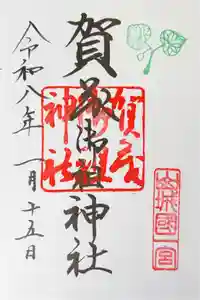 賀茂御祖神社
令和八年一月十五日
山城國一宮
賀茂御祖神社